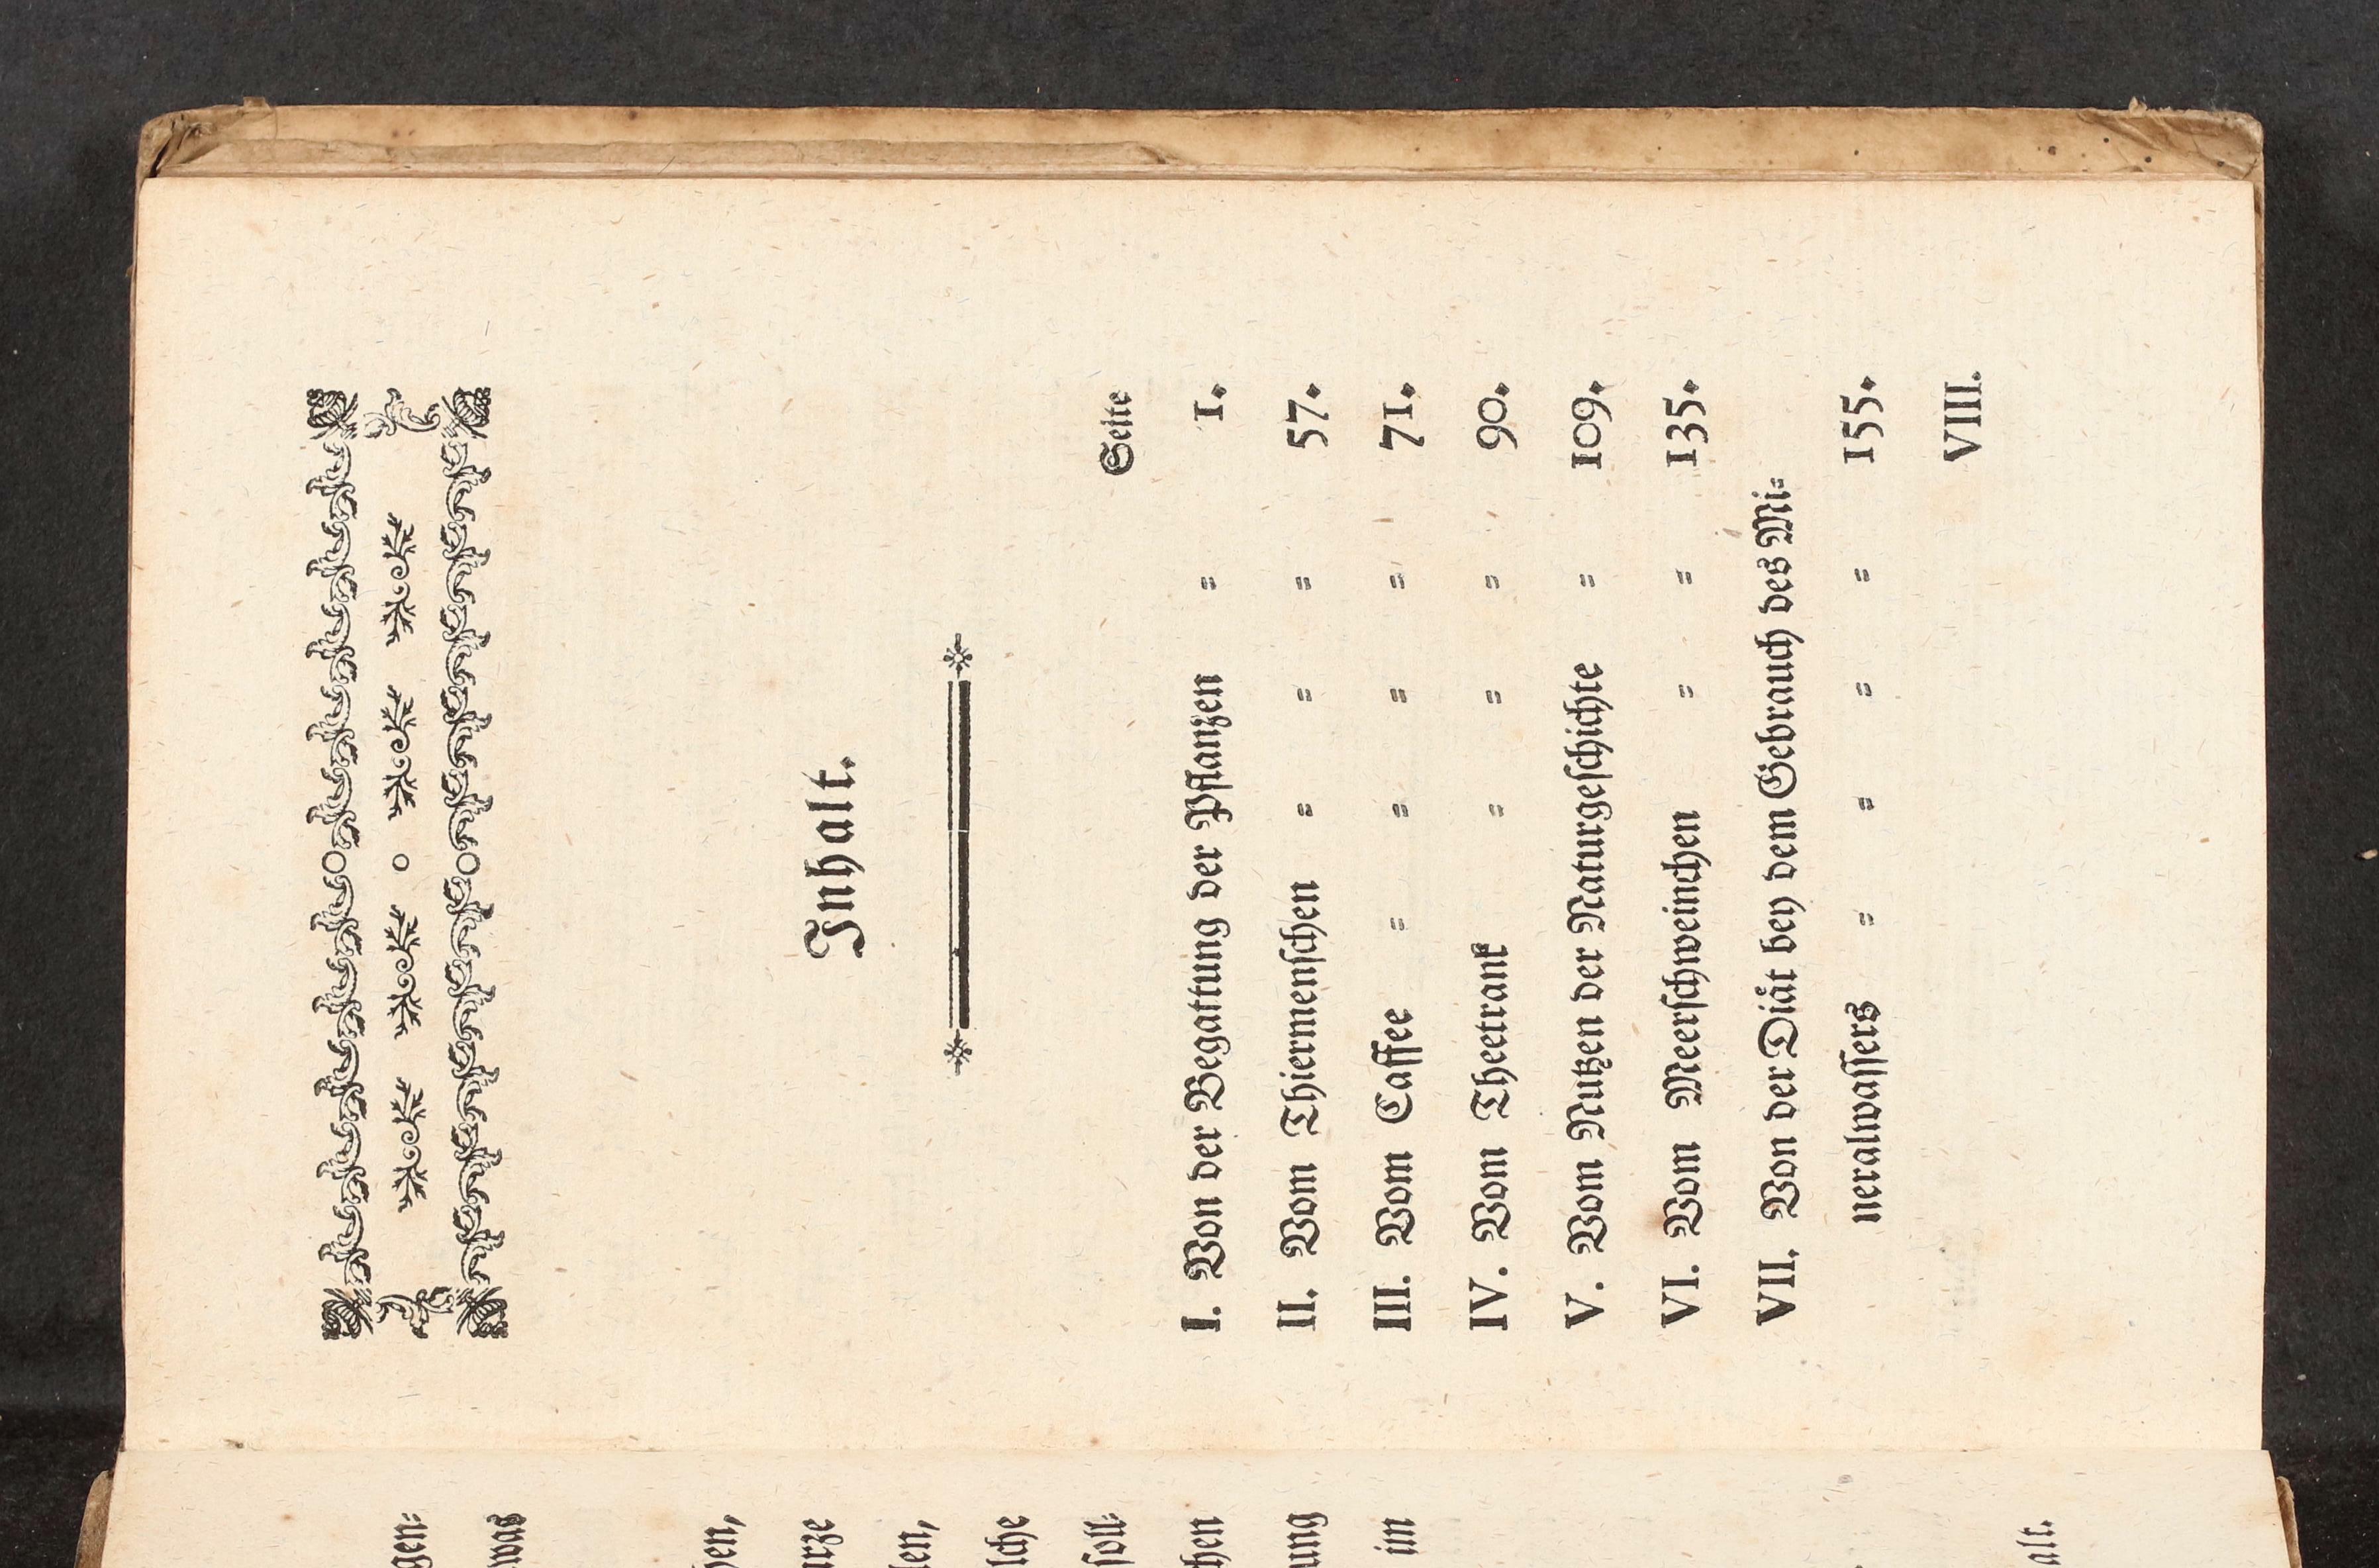 gen⸗
was
hen,
urze
len,
lche
soll⸗
chen
ung
im
alt.
Inhalt.
Seite
I. Von der Begattung der Pflantzen = 1.
II. Vom Thiermenschen = = = 57.
III. Vom Caffee = = = = 71.
IV. Vom Theetrank = = = 90.
V. Vom Nutzen der Naturgeschichte = 109.
VI. Vom Meerschweinchen = = 135.
VII. Von der Diät bey dem Gebrauch des Mi⸗
neralwassers = = = = 155.
VIII.